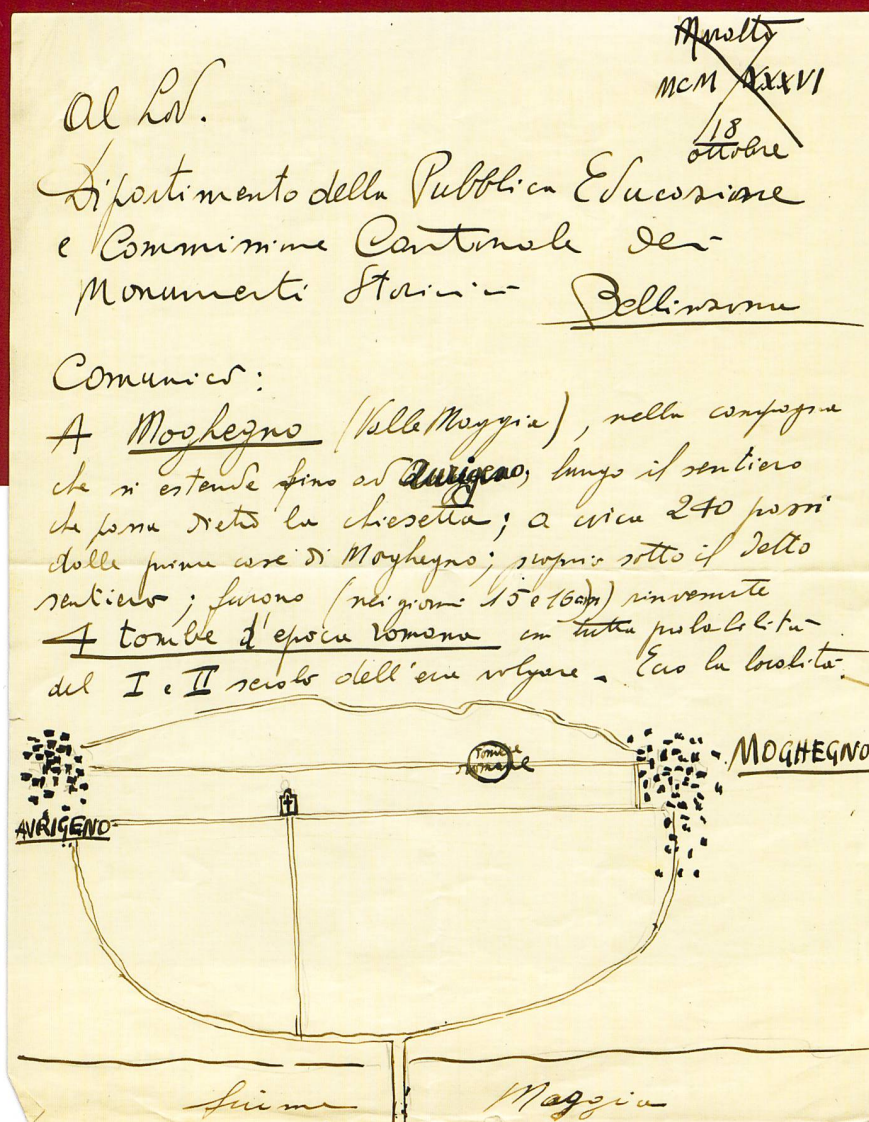 Muralto
MCM XXXVI
18
ottobre
Al Lod.
Dipartimento della Pubblica Educazione
e Commissione Cantonale dei
Monumenti Storici Bellinzona
Comunico:
A Moghegno (Valle Maggia), nella campagna
che si estende fino ad Aurigeno, lungo il sentiero
che passa dietro la chiesetta; a circa 240 passi
dalle prime case di Moghegno; proprio sotto il detto
sentiero; furono (nei giorni 15 e 16) rinvenute
4 tombe d'epoca romana con tutta probabilità
del I e II secolo dell'era volgare. Ecco la località.
Tombe
romane
MOGHEGNO
AVRIGENO
fiume Maggia